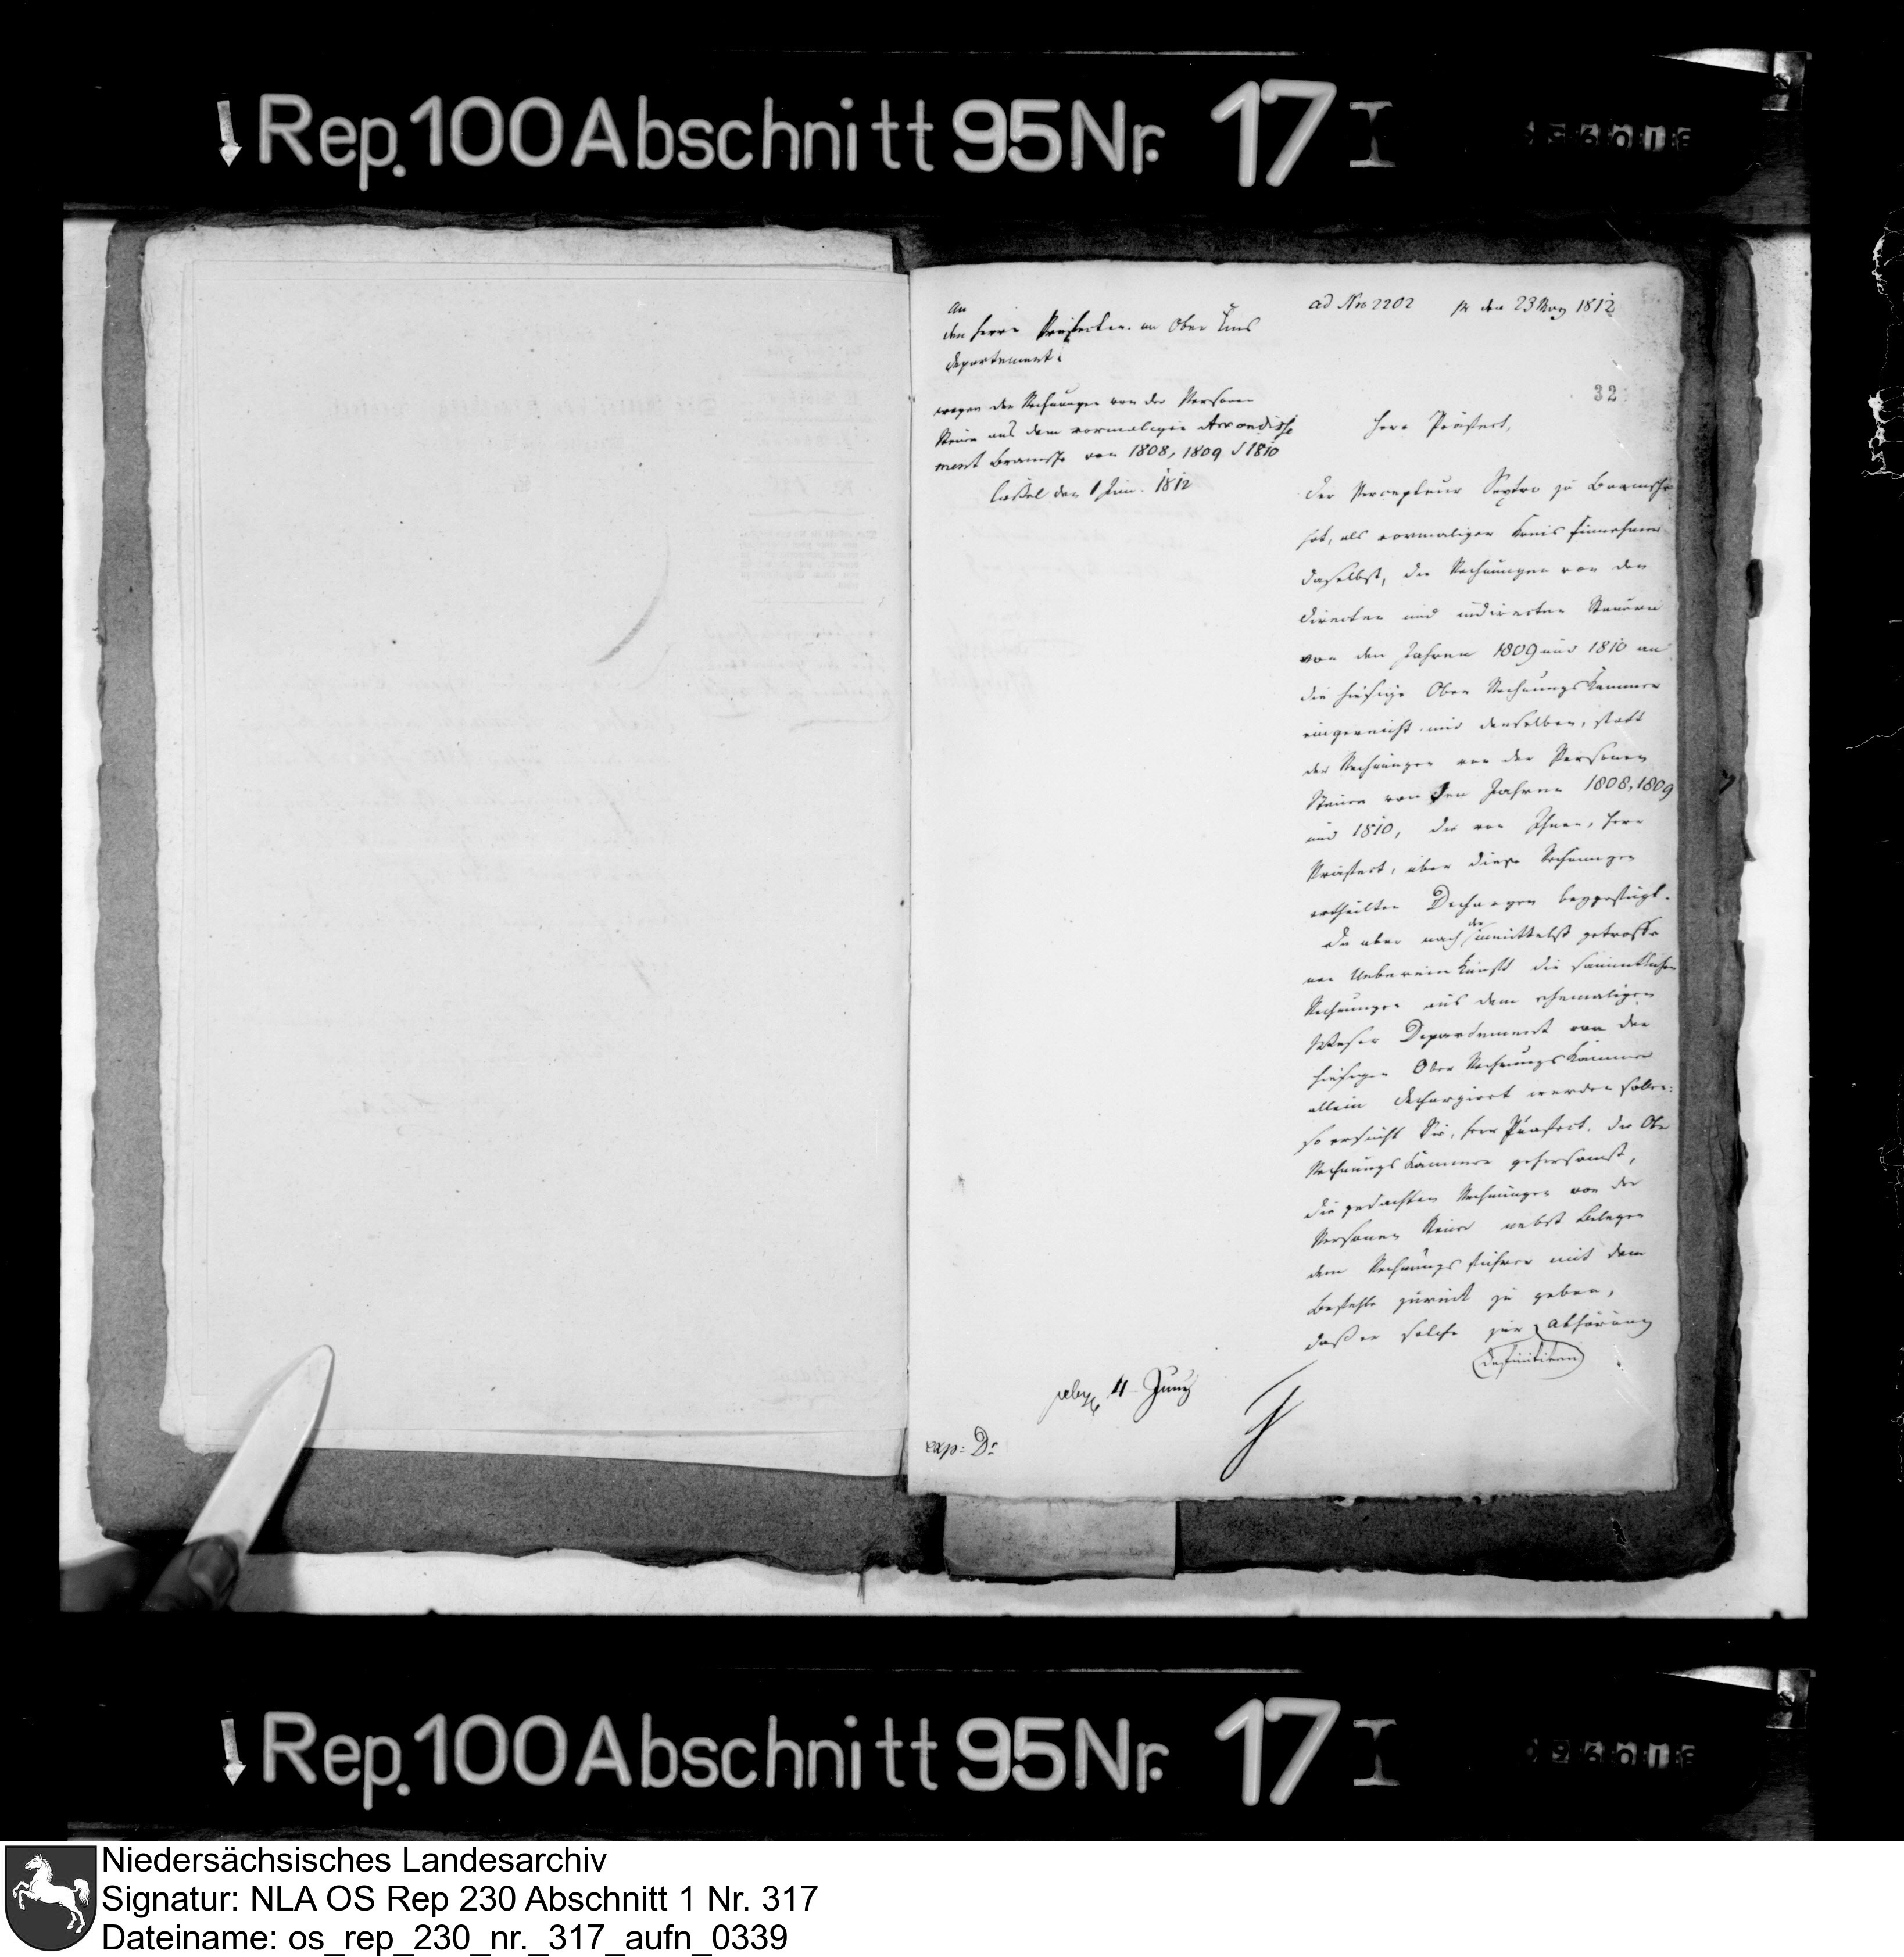 Rep. 100 Abschnitt 95 Nr. 17 I
an
den Herrn Praefecten im Ober Ems
Departement.
wegen der Rechnungen von der Personen
Steuer aus dem vormaligen Arrondisse
ment Bramsche von 1808, 1809 & 1810
Cassel den 1 Jun. 1812
ad Nro 2202 pr den 23 May 1812
32
Herr Präfect,
Der Percepteur Sextro zu Bramsche
hat, als vormaliger Kreis Einnehmer
daselbst, die Rechnungen von den
directen und indirecten Steuern
von den Jahren 1809 und 1810 an
die hiesige Ober Rechnungs Kammer
eingereicht und denselben, statt
der Rechnungen von der Personen
Steuer von den Jahren 1808, 1809
und 1810, die von Ihnen, Herr
Präfect, über diese Rechnungen
ertheilten Dechargen beygefügt.
Da aber nach der inmittelst getroffe
nen Uebereinkunft die sämmtlichen
Rechnungen aus dem ehemaligen
Weser Departement von der
hiesigen Ober Rechnungs Kammer
allein dechargirt werden sollen:
so ersucht Sie, Herr Präfect, die Ober
Rechnungs Kammer gehorsamst,
die gedachten Rechnungen von der
Personen Steuer nebst Belegen
dem Rechnungsführer mit dem
Befehle zurück zu geben,
daß er solche zur Abhörung
definitiven
4 Juny
exp: D:
Rep. 100 Abschnitt 95 Nr. 17 I
Niedersächsisches Landesarchiv
Signatur: NLA OS Rep 230 Abschnitt 1 Nr. 317
Dateiname: os_rep_230_nr._317_aufn_0339